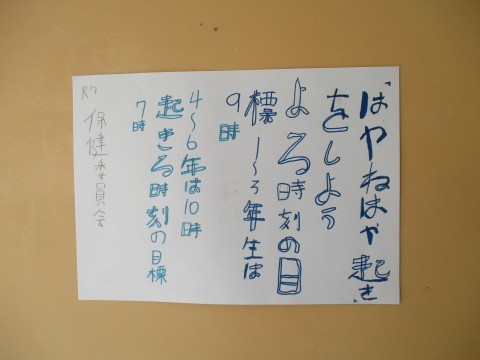 「はやねはや起き」
をしよう
よる時刻の目
標1~3年生は
9時
4~6年は10時
起きる時刻の目標
7時
保健委員会
R7